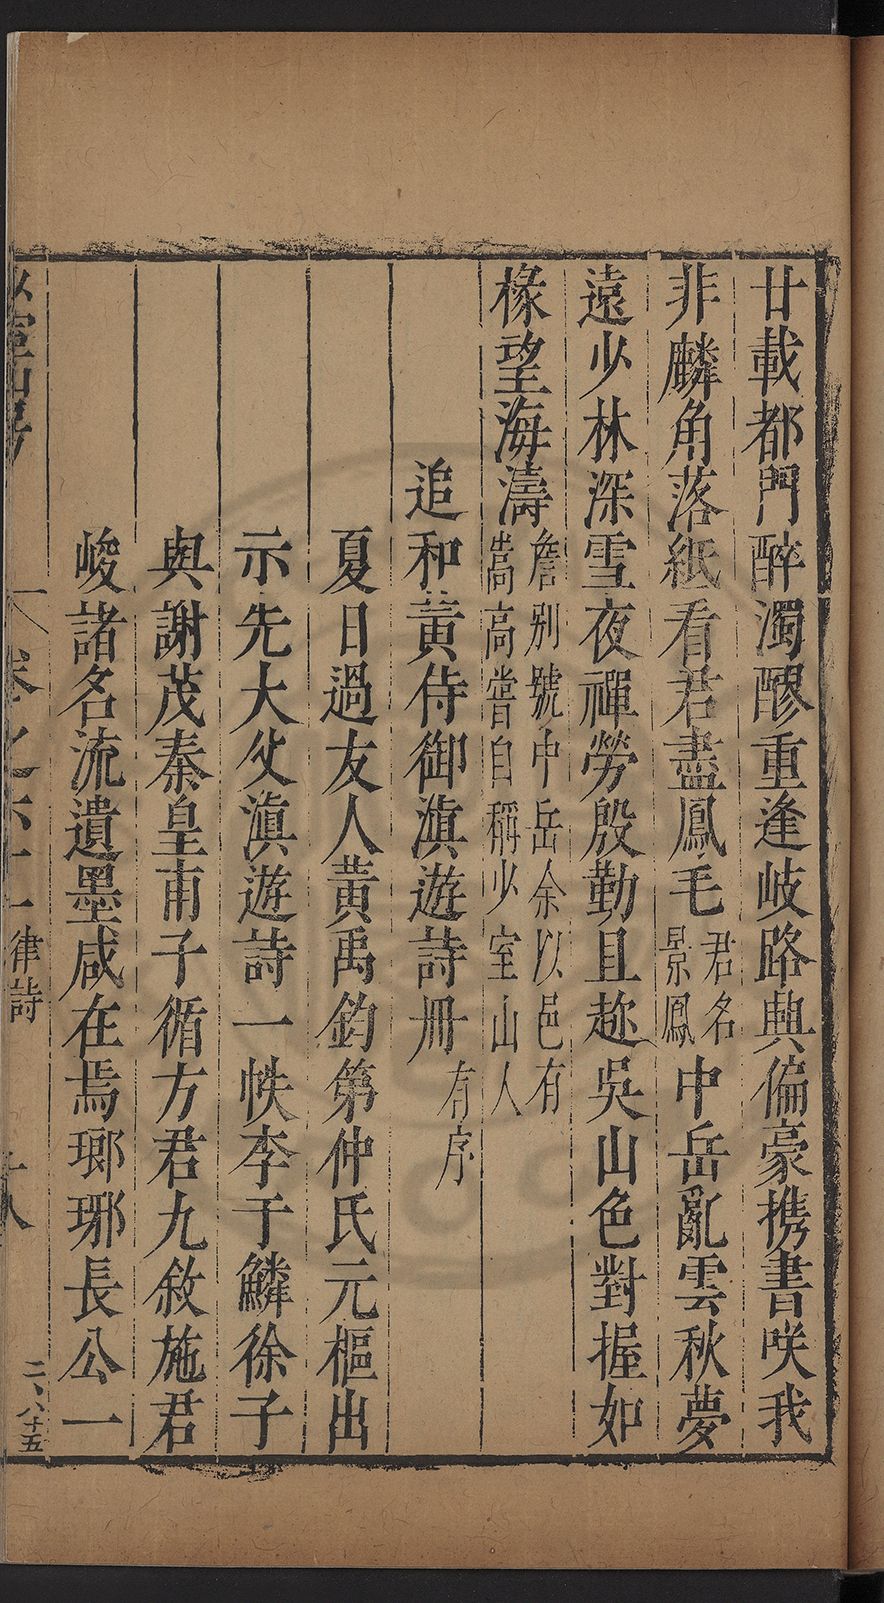 廿載都門醉濁醪重逢岐路興偏豪携書咲我
非麟角落紙看君盡鳳毛君名景鳳中岳亂雲秋夢
遠少林深雪夜禪勞殷勤且趂吳山色對握如
椽望海濤詹別號中岳余以邑有嵩高嘗自稱少室山人
追和黃侍御滇遊詩冊有序
夏日過友人黃禹鈞第仲氏元樞出
示先大父滇遊詩一帙李于鱗徐子
與謝茂秦皇甫子循方君九敘施君
峻諸名流遺墨咸在焉瑯琊長公一
卷之六十一律詩
二、八十五